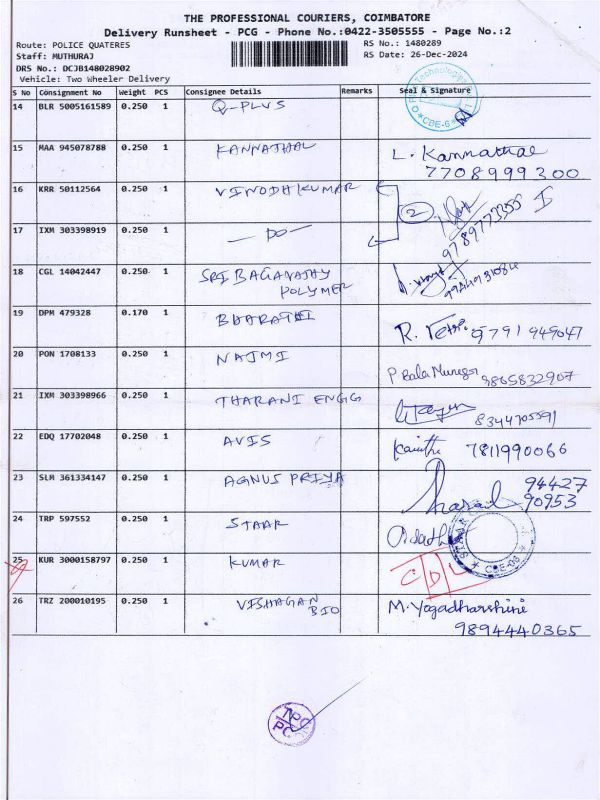 THE PROFESSIONAL COURIERS, COIMBATORE
Delivery Runsheet - PCG - Phone No.:0422-3505555 - Page No.:2
Route: POLICE QUATERES RS No.: 1480289
Staff: MUTHURAJ RS Date: 26-Dec-2024
DRS No.: DCJB148028902
Vehicle: Two Wheeler Delivery
S No Consignment No Weight PCS Consignee Details Remarks Seal & Signature
14 BLR 5005161589 0.250 1 Q-PLUS
15 MAA 945078788 0.250 1 KANNATHAL L. Kannathal
7708999300
16 KRR 50112564 0.250 1 VINODHKUMAR 2
9789773355
17 IXM 303398919 0.250 1 — DO —
18 CGL 14042447 0.250 1 SRI BAGANATHY
POLYMER
19 DPM 479328 0.170 1 BHARATHI R. 9791 949047
20 PON 1708133 0.250 1 NAJMI P Bala Muruga 9865832907
21 IXM 303398966 0.250 1 THARANI ENGG 8344705591
22 EDQ 17702048 0.250 1 AVIS 7811990066
23 SLM 361334147 0.250 1 AGNUS PRIYA 94427
90953
24 TRP 597552 0.250 1 STAAR
25 KUR 3000158797 0.250 1 KUMAR CDL
26 TRZ 200010195 0.250 1 VISHAGAN
BIO M. Yogadharshini
9894440365